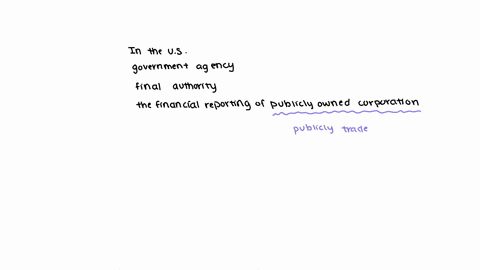 In the U.S.
government agency
final authority
the financial reporting of publicly owned corporation
publicly trade